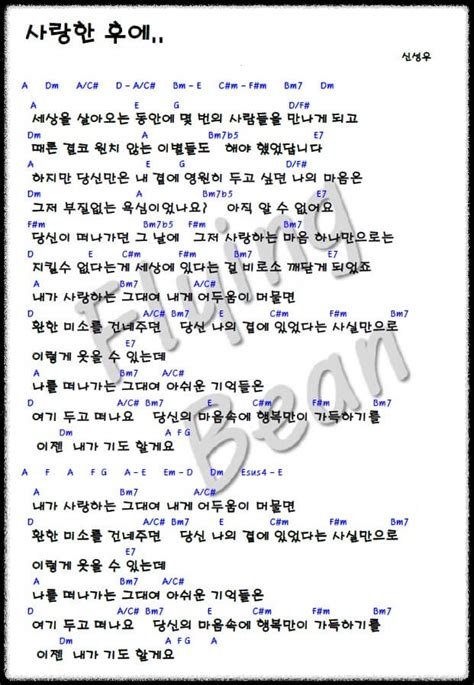 사랑한 후에..
신성우
A Dm A/C# D - A/C# Bm - E C#m - F#m Bm7 Dm
A E G D/F#
세상을 살아오는 동안에 몇 번의 사람들을 만나게 되고
Dm A Bm7b5 E7
때론 결코 원치 않는 이별들도 해야 했었답니다
A E G D/F#
하지만 당신만은 내 곁에 영원히 두고 싶던 나의 마음은
Dm A Bm7b5 E7
그저 부질없는 욕심이었나요? 아직 알 수 없어요
F#m Bm7b5 F#m Bm7
당신이 떠나가던 그 날에 그저 사랑하는 마음 하나만으로는
D E D E
지킬수 없다는게 세상에 있다는 걸 비로소 깨닫게 되었죠
A Bm7 A/C# Bm7
내가 사랑하는 그대여 내게 어두움이 머물면
D A/C# Bm7 E C#m F#m Bm7
환한 미소를 건네주면 당신 나의 곁에 있었다는 사실만으로
E7
이렇게 웃을 수 있는데
A Bm7 A/C# Bm7
나를 떠나가는 그대여 아쉬운 기억들은
D A/C# Bm7 E C#m F#m Bm7
여기 두고 떠나요 당신의 마음속에 행복만이 가득하기를
Dm A F G
이젠 내가 기도 할게요
A F A F G A - E Em - D Dm Esus4 - E
A Bm7 A/C# Bm7
내가 사랑하는 그대여 내게 어두움이 머물면
D A/C# Bm7 E C#m F#m Bm7
환한 미소를 건네주면 당신 나의 곁에 있었다는 사실만으로
E7
이렇게 웃을 수 있는데
A Bm7 A/C# Bm7
나를 떠나가는 그대여 아쉬운 기억들은
D A/C# Bm7 E C#m F#m Bm7
여기 두고 떠나요 당신의 마음속에 행복만이 가득하기를
Dm A F G A
이젠 내가 기도 할게요
Flying
Bean